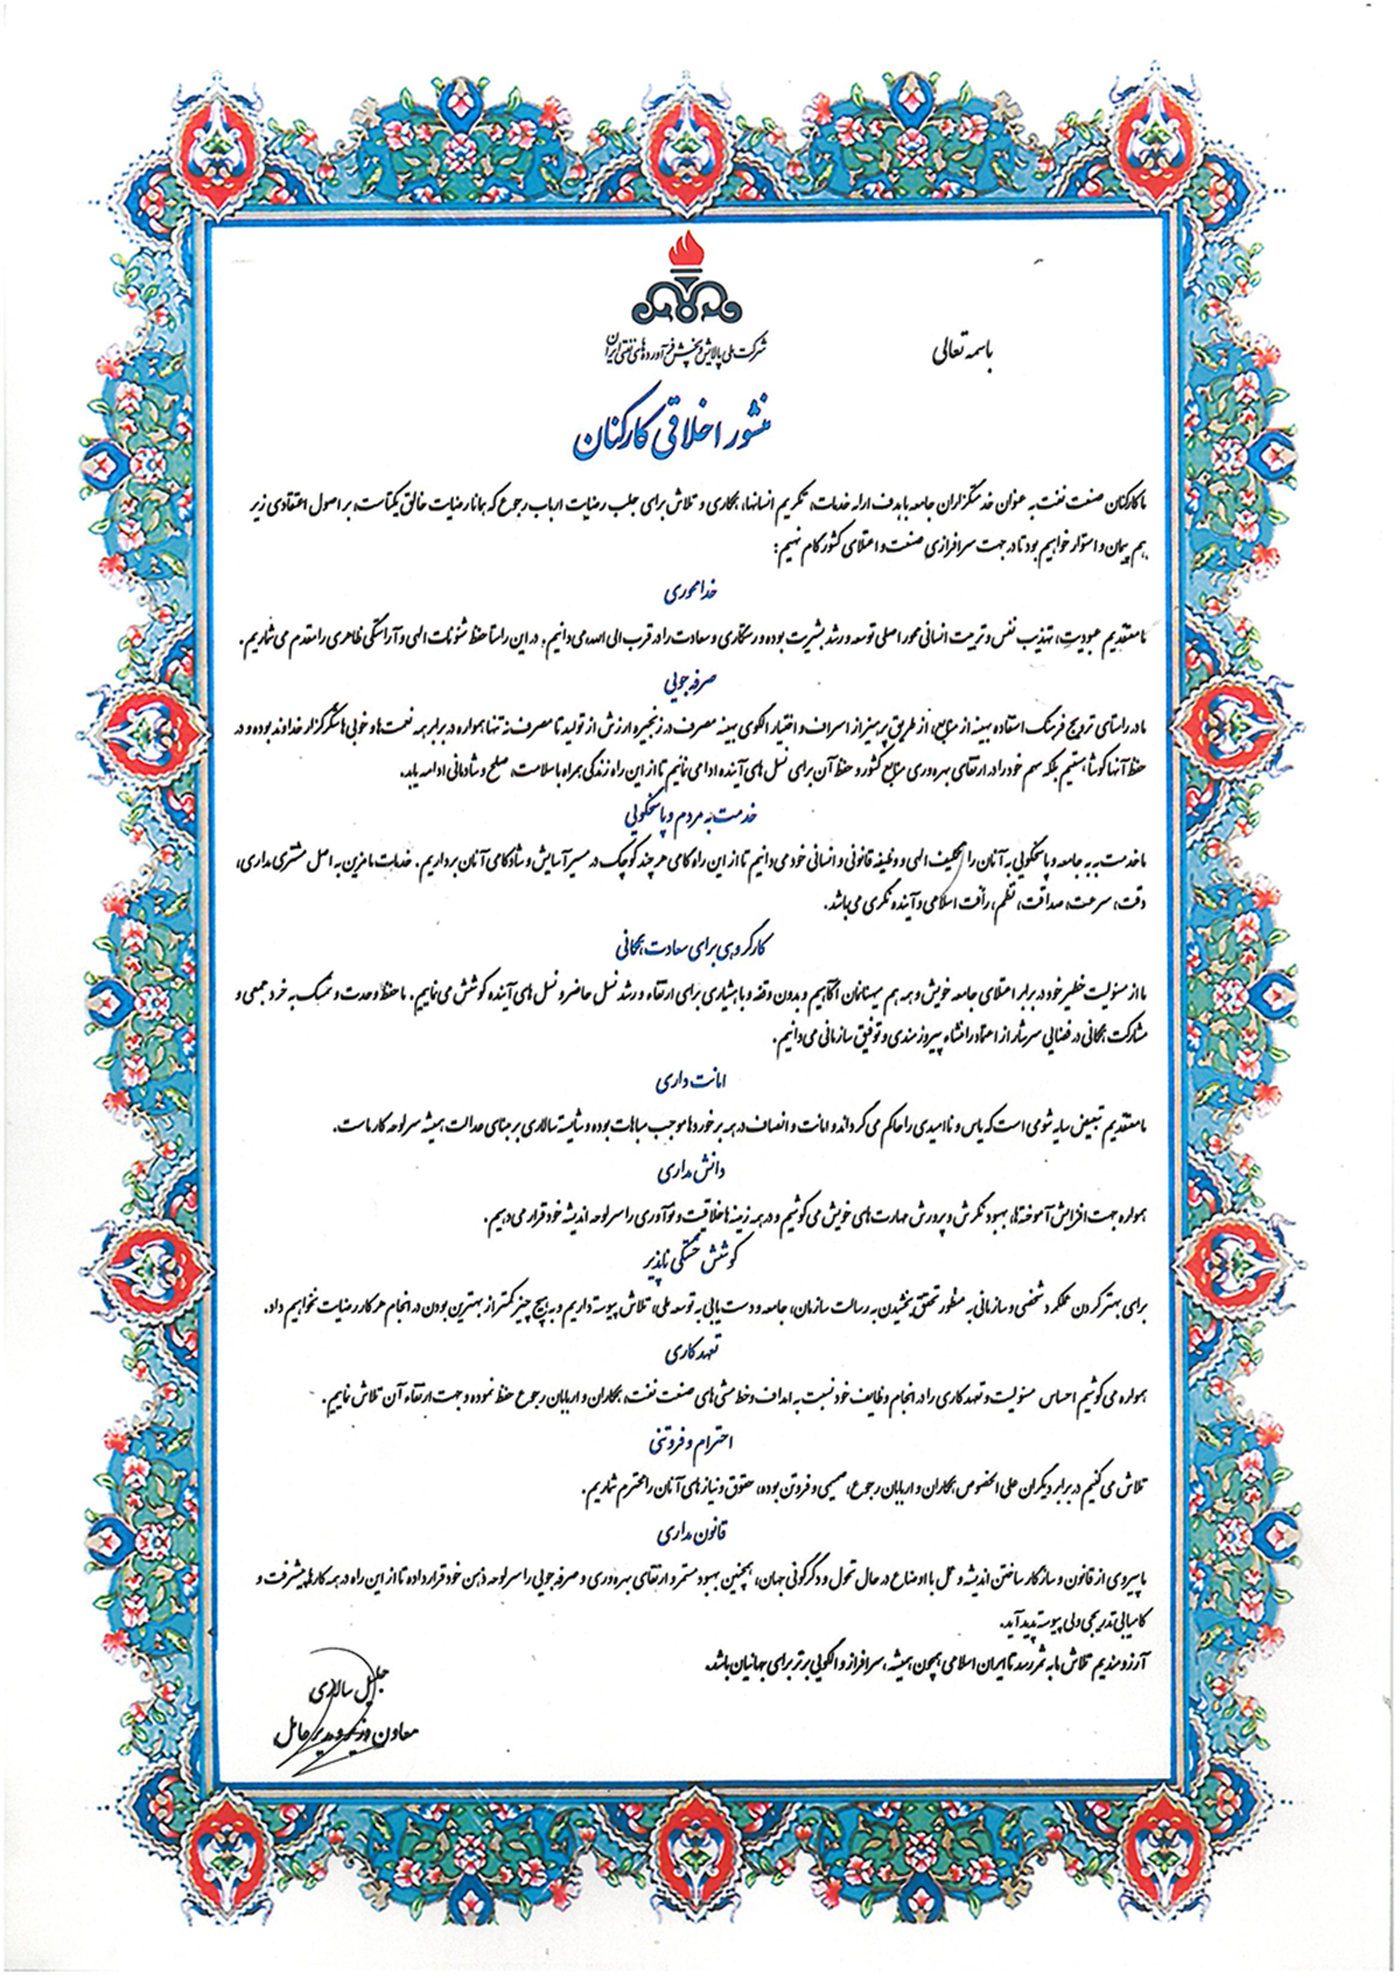 باسمه تعالی
شرکت ملی پالایش و پخش فرآورده های نفتی ایران
منشور اخلاقی کارکنان
ما کارکنان صنعت نفت به عنوان خدمتگزاران جامعه با هدف ارائه خدمات، تکریم انسانها، همکاری و تلاش برای جلب رضایت ارباب رجوع که همانا رضایت خالق یکتاست، بر اصول اعتقادی زیر
هم پیمان و استوار خواهیم بود تا در جهت سرافرازی صنعت و اعتلای کشور گام نهیم:
خدامحوری
ما معتقدیم عبودیت، تهذیب نفس و تربیت انسانی محور اصلی توسعه و رشد بشریت بوده و رستگاری و سعادت را در قرب الی الله می دانیم. در این راستا حفظ شئونات الهی و آراستگی ظاهری را مقدم می شماریم.
صرفه جویی
ما در راستای ترویج فرهنگ استفاده بهینه از منابع، از طریق پرهیز از اسراف و اختیار الگوی بهینه مصرف در زنجیره ارزش از تولید تا مصرف نه تنها همواره در برابر همه نعمت ها و خوبی ها شکرگزار خداوند بوده و در
حفظ آنها کوشا هستیم بلکه سهم خود را در ارتقای بهره وری منابع کشور و حفظ آن برای نسل های آینده ادا می نمائیم تا از این راه زندگی همراه با سلامت، صلح و شادمانی ادامه یابد.
خدمت به مردم و پاسخگویی
ما خدمت به جامعه و پاسخگویی به آنان را تکلیف الهی و وظیفه قانونی و انسانی خود می دانیم تا از این راه گامی هر چند کوچک در مسیر آسایش و شادکامی آنان برداریم. خدمات ما مزین به اصل مشتری مداری،
دقت، سرعت، صداقت، نظم، رأفت اسلامی و آینده نگری می باشد.
کار گروهی برای سعادت همگانی
ما از مسئولیت خطیر خود در برابر اعتلای جامعه خویش و همه هم میهنانمان آگاهیم و بدون وقفه و با هشیاری برای ارتقاء و رشد نسل حاضر و نسل های آینده کوشش می نماییم. ما حفظ وحدت و تمسک به خرد جمعی و
مشارکت همگانی در فضایی سرشار از اعتماد را منشاء پیروزمندی و توفیق سازمانی می دانیم.
امانت داری
ما معتقدیم تبعیض سایه شومی است که یاس و ناامیدی را حاکم می گرداند و امانت و انصاف در همه برخوردها موجب مباهات بوده و شایسته سالاری بر مبنای عدالت همیشه سرلوحه کار ماست.
دانش مداری
همواره جهت افزایش آموخته ها، بهبود نگرش و پرورش مهارت های خویش می کوشیم و در همه زمینه ها خلاقیت و نوآوری را سرلوحه اندیشه خود قرار می دهیم.
کوشش خستگی ناپذیر
برای بهتر کردن عملکرد شخصی و سازمانی به منظور تحقق بخشیدن به رسالت سازمان، جامعه و دست یابی به توسعه ملی، تلاش پیوسته داریم و به هیچ چیز کمتر از بهترین بودن در انجام هر کار رضایت نخواهیم داد.
تعهد کاری
همواره می کوشیم احساس مسئولیت و تعهد کاری را در انجام وظایف خود نسبت به اهداف و خط مشی های صنعت نفت، همکاران و اربابان رجوع حفظ نموده و جهت ارتقاء آن تلاش نماییم.
احترام و فروتنی
تلاش می کنیم در برابر دیگران علی الخصوص همکاران و اربابان رجوع، صمیمی و فروتن بوده، حقوق و نیازهای آنان را محترم شماریم.
قانون مداری
ما پیروی از قانون و سازگار ساختن اندیشه و عمل با اوضاع در حال تحول و دگرگونی جهان، همچنین بهبود مستمر و ارتقای بهره وری و صرفه جویی را سرلوحه ذهن خود قرار داده تا از این راه در همه کارها پیشرفت و
کامیابی تدریجی ولی پیوسته پدید آید.
آرزومندیم تلاش ما به ثمر رسد تا ایران اسلامی همچون همیشه، سرافراز و الگویی برتر برای جهانیان باشد.
جلیل سالاری
معاون وزیر و مدیرعامل